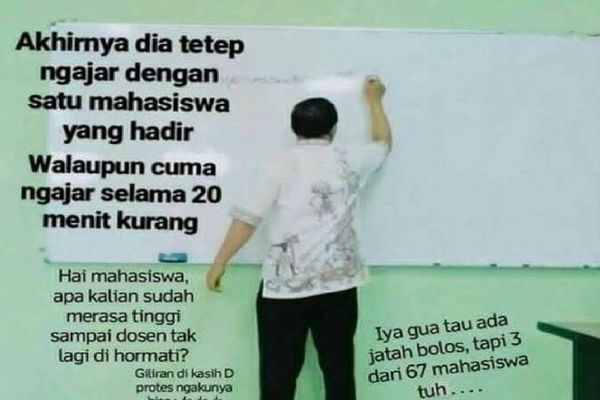 Akhirnya dia tetep
ngajar dengan
satu mahasiswa
yang hadir
Walaupun cuma
ngajar selama 20
menit kurang
Hai mahasiswa,
apa kalian sudah
merasa tinggi
sampai dosen tak
lagi di hormati?
Giliran di kasih D
protes ngakunya
Iya gua tau ada
jatah bolos, tapi 3
dari 67 mahasiswa
tuh . . . .